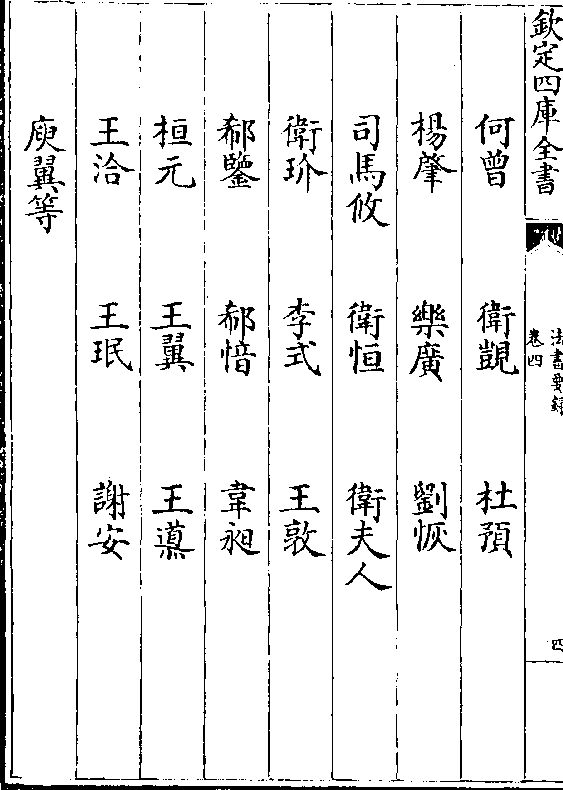 欽定四庫全書
法書要錄
卷四
四
何曾 衛覬 杜預
楊肇 樂廣 劉恢
司馬攸 衛恒 衛夫人
衛玠 李式 王敦
郗鑒 郗愔 韋昶
桓元 王翼 王薫
王洽 王珉 謝安
庾翼等